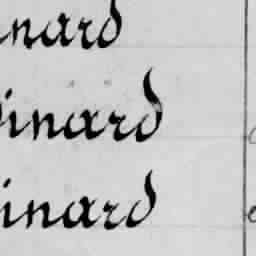 nard
inard
inard